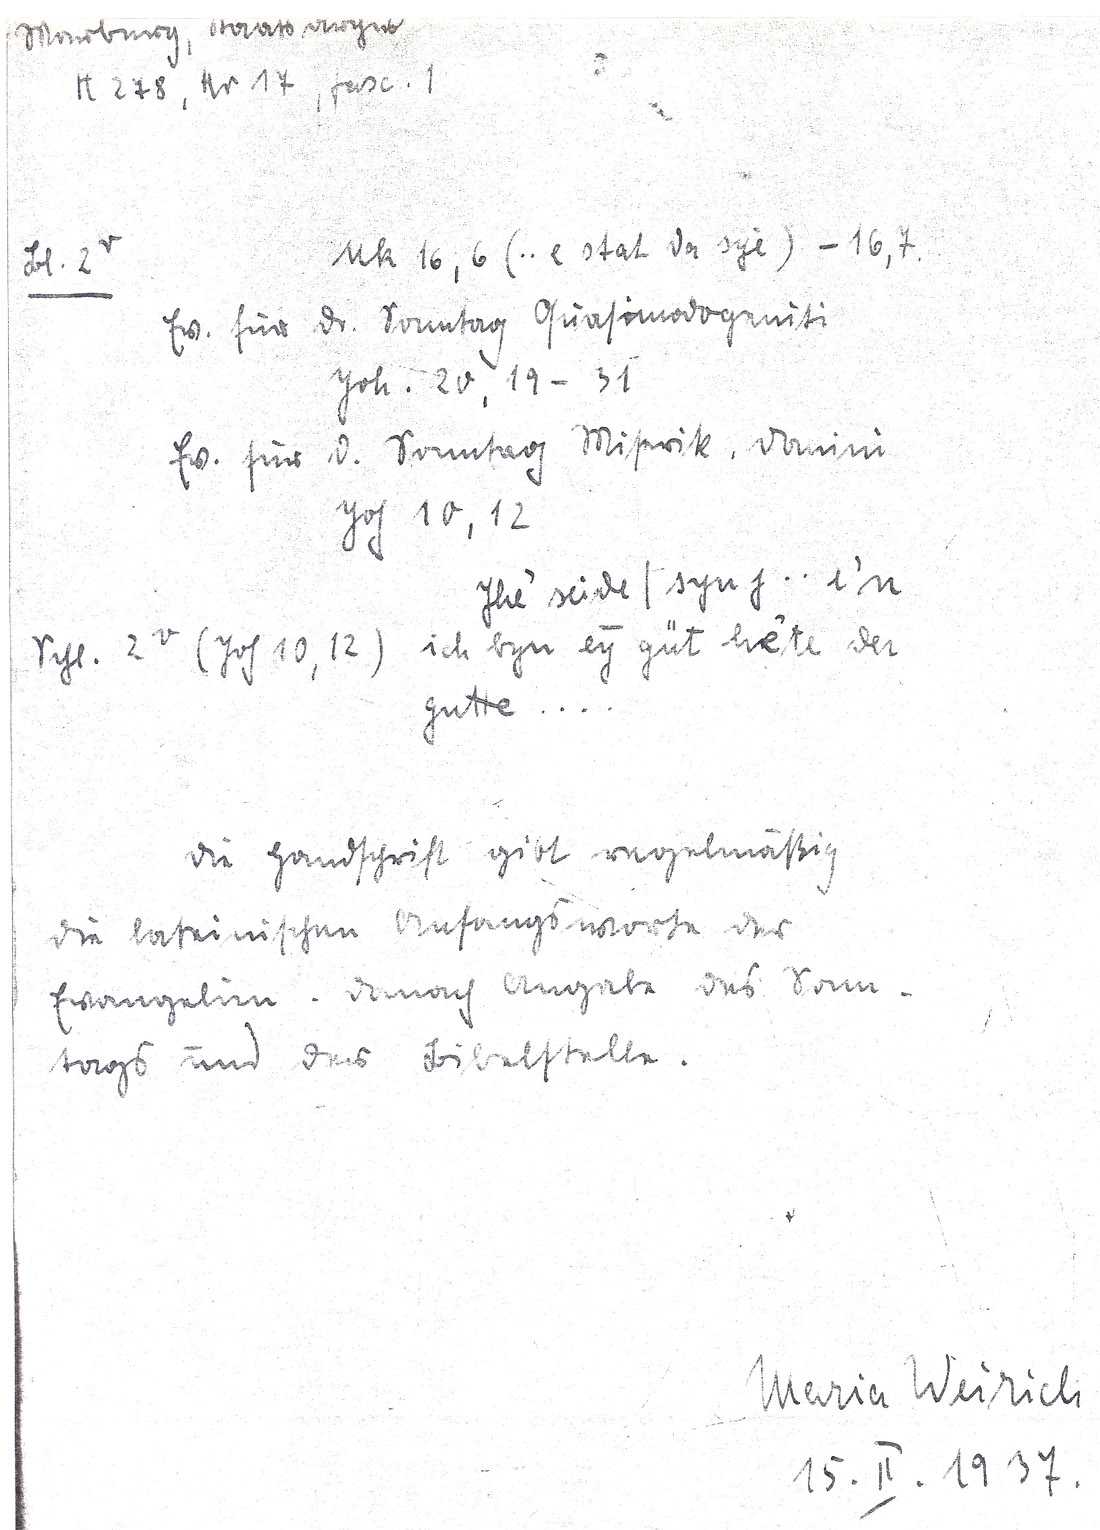 Marburg, Staatsarchiv
H 278, Nr 17, fasc. 1
Bl. 2v
Mk 16,6 (.. e stat da syè) – 16,7.
Ev. für d. Sonntag Quasimodogeniti
Joh. 20, 19 – 31
Ev. für d. Sonntag Miserik. domini
Joh 10, 12
Jhē seide | syn j .. i'n
Schl. 2v (Joh 10,12) ich byn eȳ gūt hēte der
gutte ....
Die Handschrift gibt regelmäßig
die lateinischen Anfangsworte der
Evangelien. danach Angabe des Sonn-
tags und der Bibelstelle.
Maria Weirich
15. II. 1937.